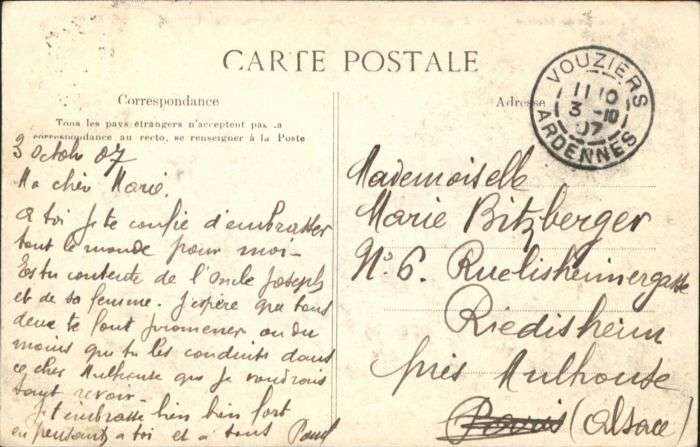 CARTE POSTALE
Correspondance
Tous les pays étrangers n'acceptent pas la
correspondance au recto, se renseigner à la Poste
3 octobre 07
Ma chère Marie.
A toi je te confie d'embrasser
tout le monde pour moi -
Es tu contente de l'oncle Joseph
et de sa femme. J'espère que tous
deux te font promener ou du
moins que tu les conduits dans
ce cher Mulhouse que je voudrais
tant revoir -
Je t'embrasse bien bien fort
en pensant à toi et à tous Paul
Adresse
VOUZIERS
11 10
3 -10
07
ARDENNES
Mademoiselle
Marie Bitzberger
No 6. Ruelisheimergasse
Riedisheim
près Mulhouse
(Alsace)